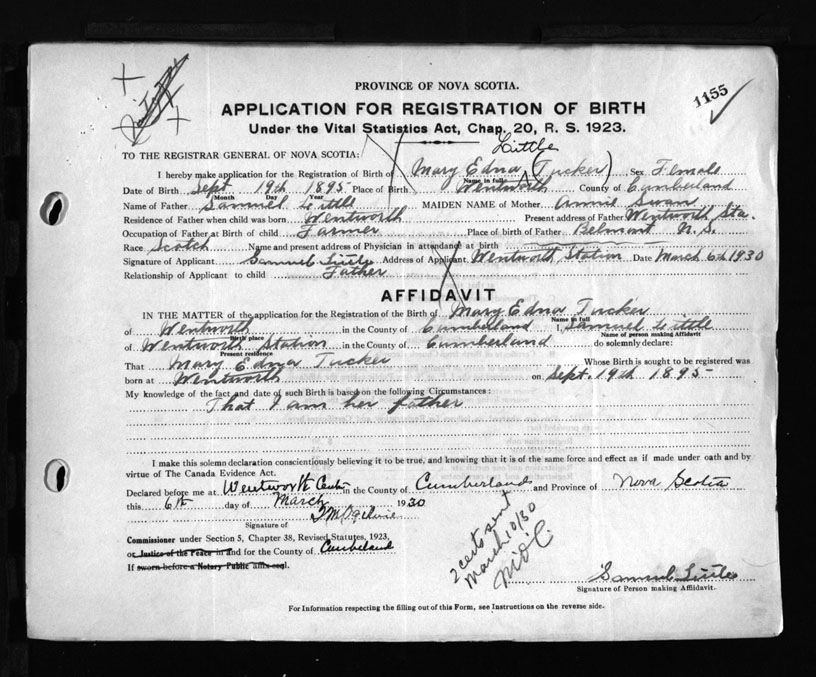 PROVINCE OF NOVA SCOTIA.
1155
APPLICATION FOR REGISTRATION OF BIRTH
Under the Vital Statistics Act, Chap. 20, R. S. 1923.
TO THE REGISTRAR GENERAL OF NOVA SCOTIA:
Little
I hereby make application for the Registration of Birth of Mary Edna (Tucker) Sex Female
Name in full
Date of Birth Sept 19th 1895 Place of Birth Wentworth County of Cumberland
Month Day Year
Name of Father Samuel Little MAIDEN NAME of Mother Annie Swan
Residence of Father when child was born Wentworth Present address of Father Wentworth Sta.
Occupation of Father at Birth of child Farmer Place of birth of Father Belmont N. S.
Race Scotch Name and present address of Physician in attendance at birth
Signature of Applicant Samuel Little Address of Applicant Wentworth Station Date March 6th 1930
Relationship of Applicant to child Father
AFFIDAVIT
IN THE MATTER of the application for the Registration of the Birth of Mary Edna Tucker
Name in full
of Wentworth in the County of Cumberland I, Samuel Little
Birth place Name of person making Affidavit
of Wentworth Station in the County of Cumberland do solemnly declare:
Present residence
That Mary Edna Tucker Whose Birth is sought to be registered was
born at Wentworth on Sept. 19th 1895
My knowledge of the fact and date of such Birth is based on the following Circumstances:
That I am her father
I make this solemn declaration conscientiously believing it to be true, and knowing that it is of the same force and effect as if made under oath and by
virtue of The Canada Evidence Act.
Declared before me at Wentworth in the County of Cumberland and Province of Nova Scotia
this 6th day of March 1930
Signature of
Commissioner under Section 5, Chapter 38, Revised Statutes, 1923,
or Justice of the Peace in and for the County of Cumberland
If sworn before a Notary Public affix seal.
2 certs sent
March 10/30
Samuel Little
Signature of Person making Affidavit.
For Information respecting the filling out of this Form, see Instructions on the reverse side.